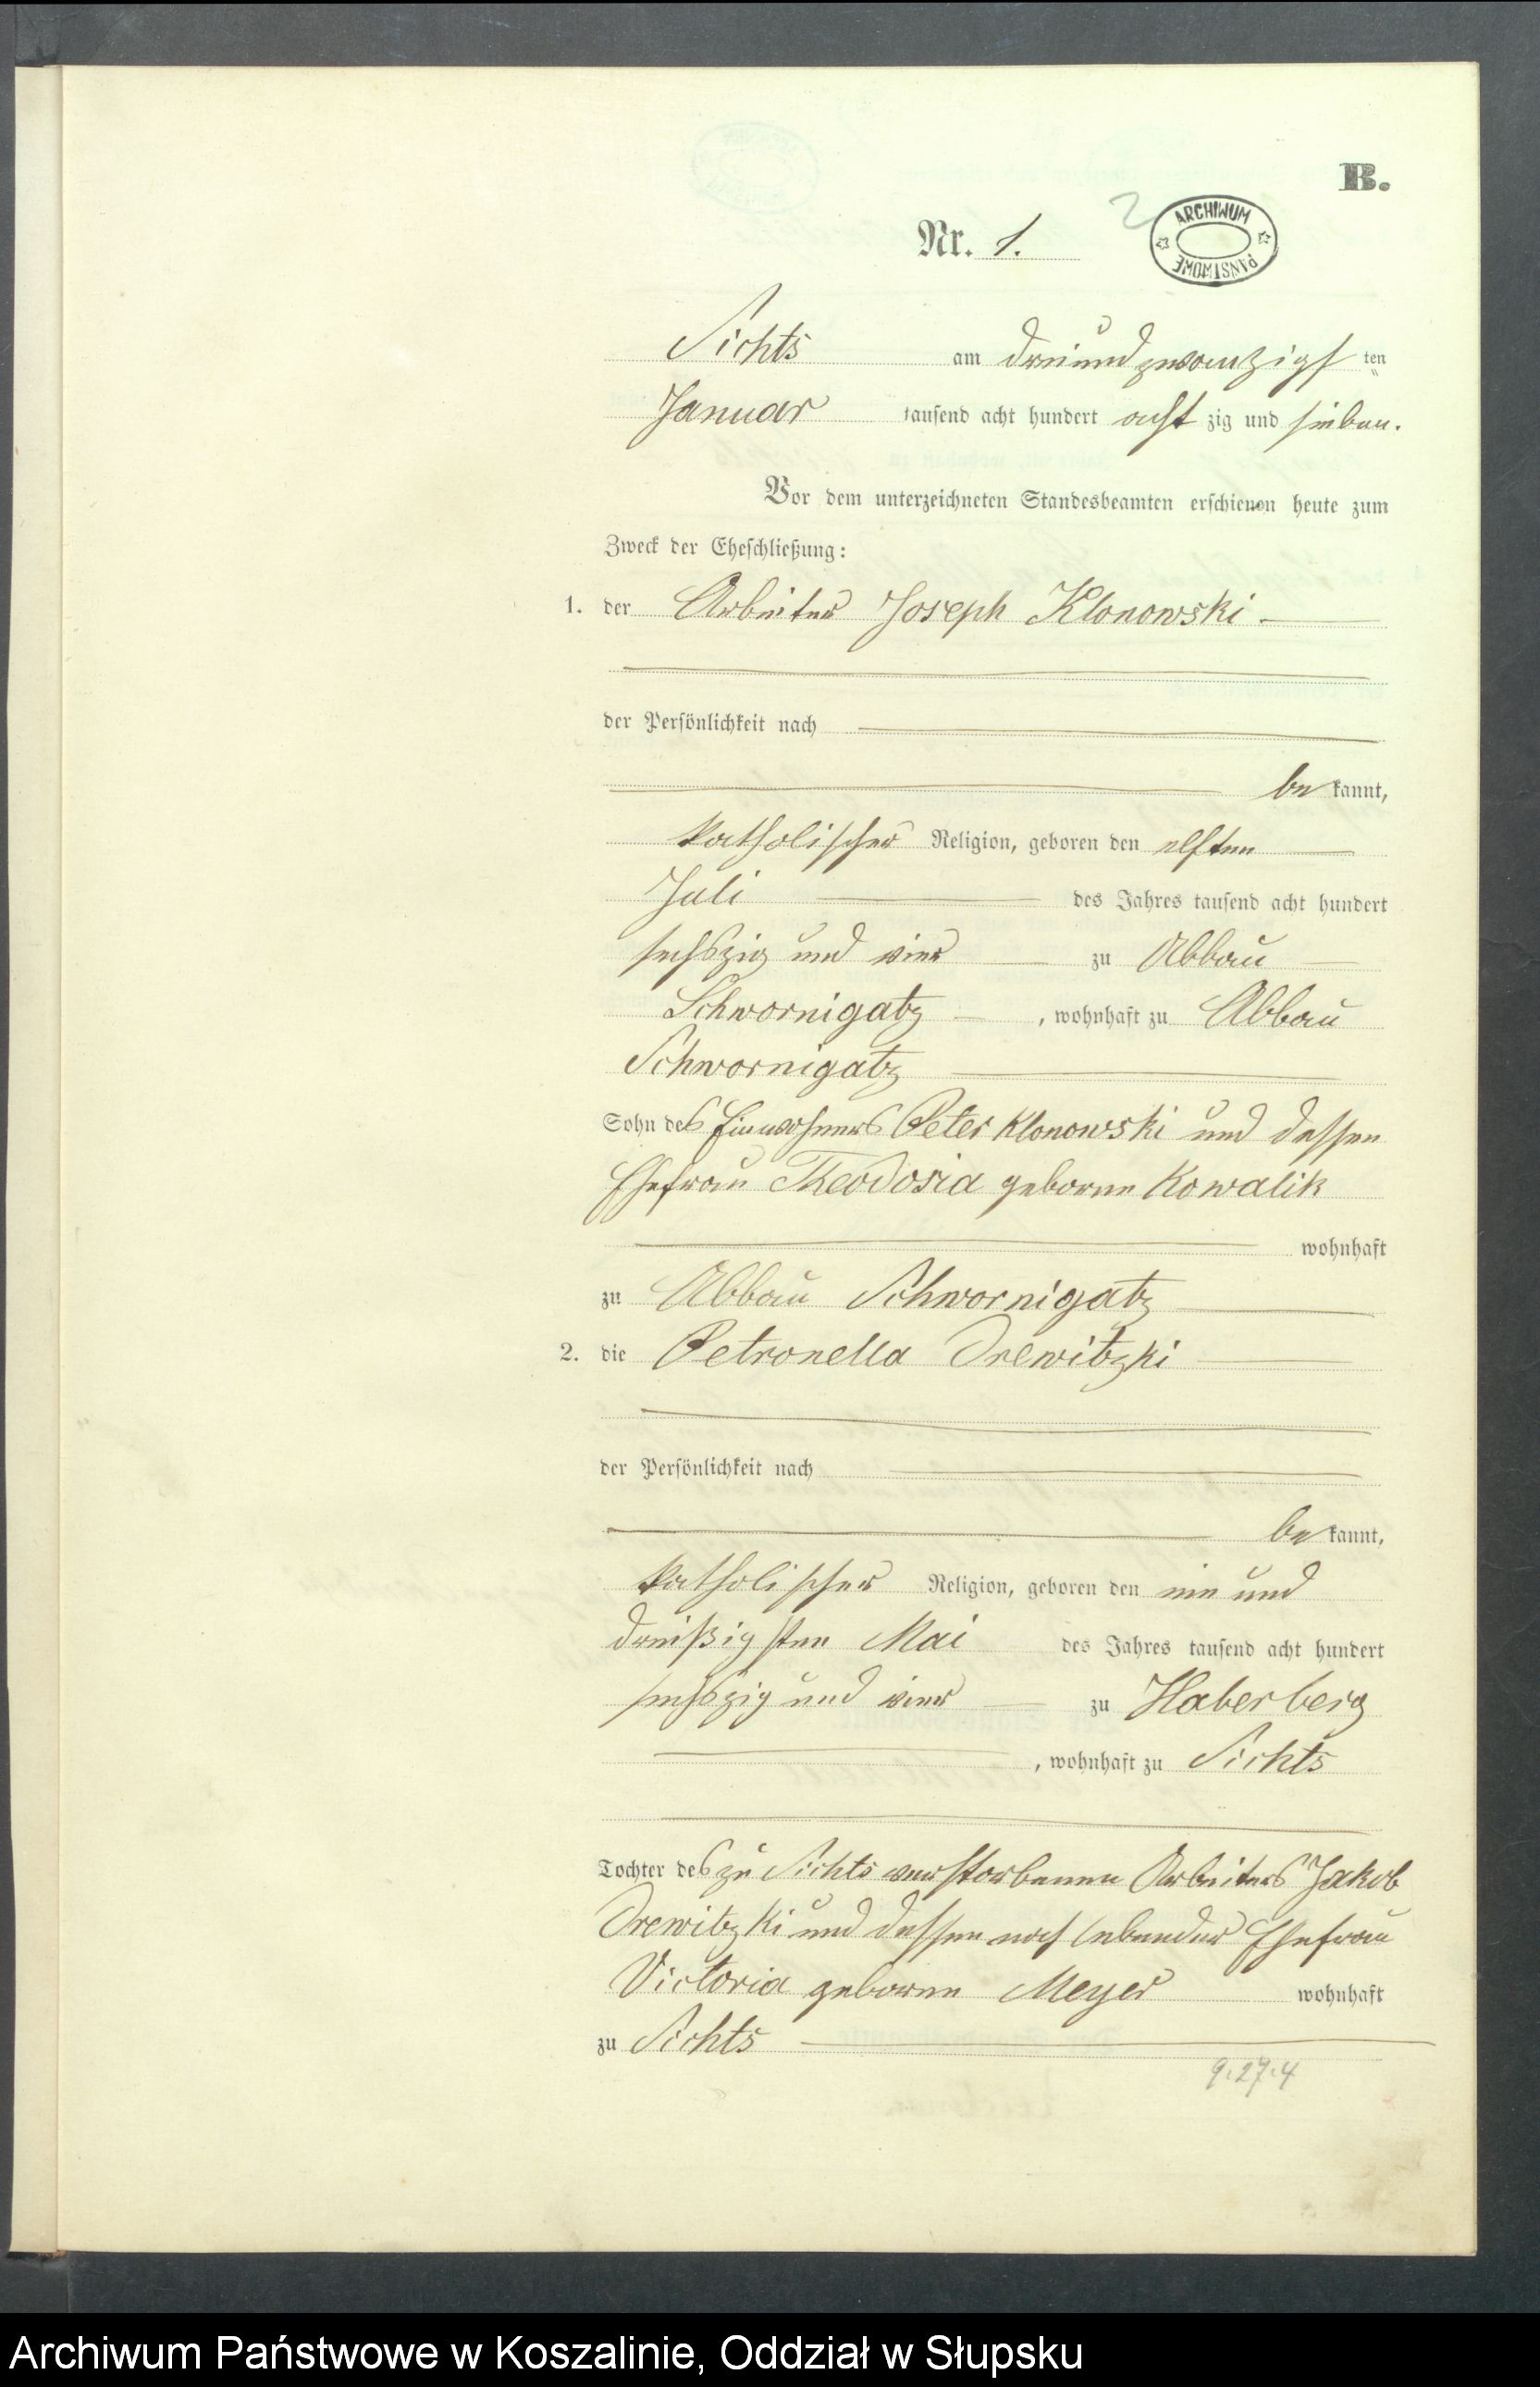 B.
2
ARCHIWUM PAŃSTWOWE
Nr. 1.
Sichts am dreiundzwanzigsten
Januar tausend acht hundert achtzig und sieben.
Vor dem unterzeichneten Standesbeamten erschienen heute zum
Zweck der Eheschließung:
1. der Arbeiter Joseph Klonowski
der Persönlichkeit nach
bekannt,
katholischer Religion, geboren den elften
Juli des Jahres tausend acht hundert
sechszig und vier zu Abbau
Schwornigatz, wohnhaft zu Abbau
Schwornigatz
Sohn des Einwohners Peter Klonowski und dessen
Ehefrau Theodosia geborne Kowalik
wohnhaft
zu Abbau Schwornigatz
2. die Petronella Drewitzki
der Persönlichkeit nach
bekannt,
katholischer Religion, geboren den ein und
dreißigsten Mai des Jahres tausend acht hundert
sechszig und vier zu Haberberg
, wohnhaft zu Sichts
Tochter des zu Sichts verstorbenen Arbeiters Jakob
Drewitzki und dessen noch lebender Ehefrau
Victoria geborne Meyer wohnhaft
zu Sichts
9.27.4
Archiwum Państwowe w Koszalinie, Oddział w Słupsku